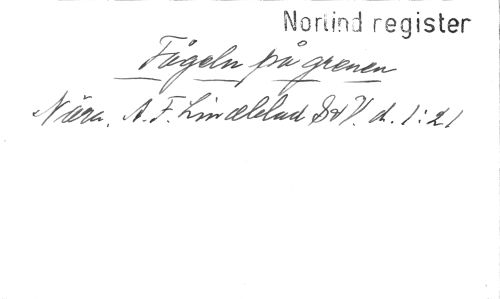 Norlind register
Fågeln på grenen
Nära. A. F. Lindblad S o V. d. 1:21